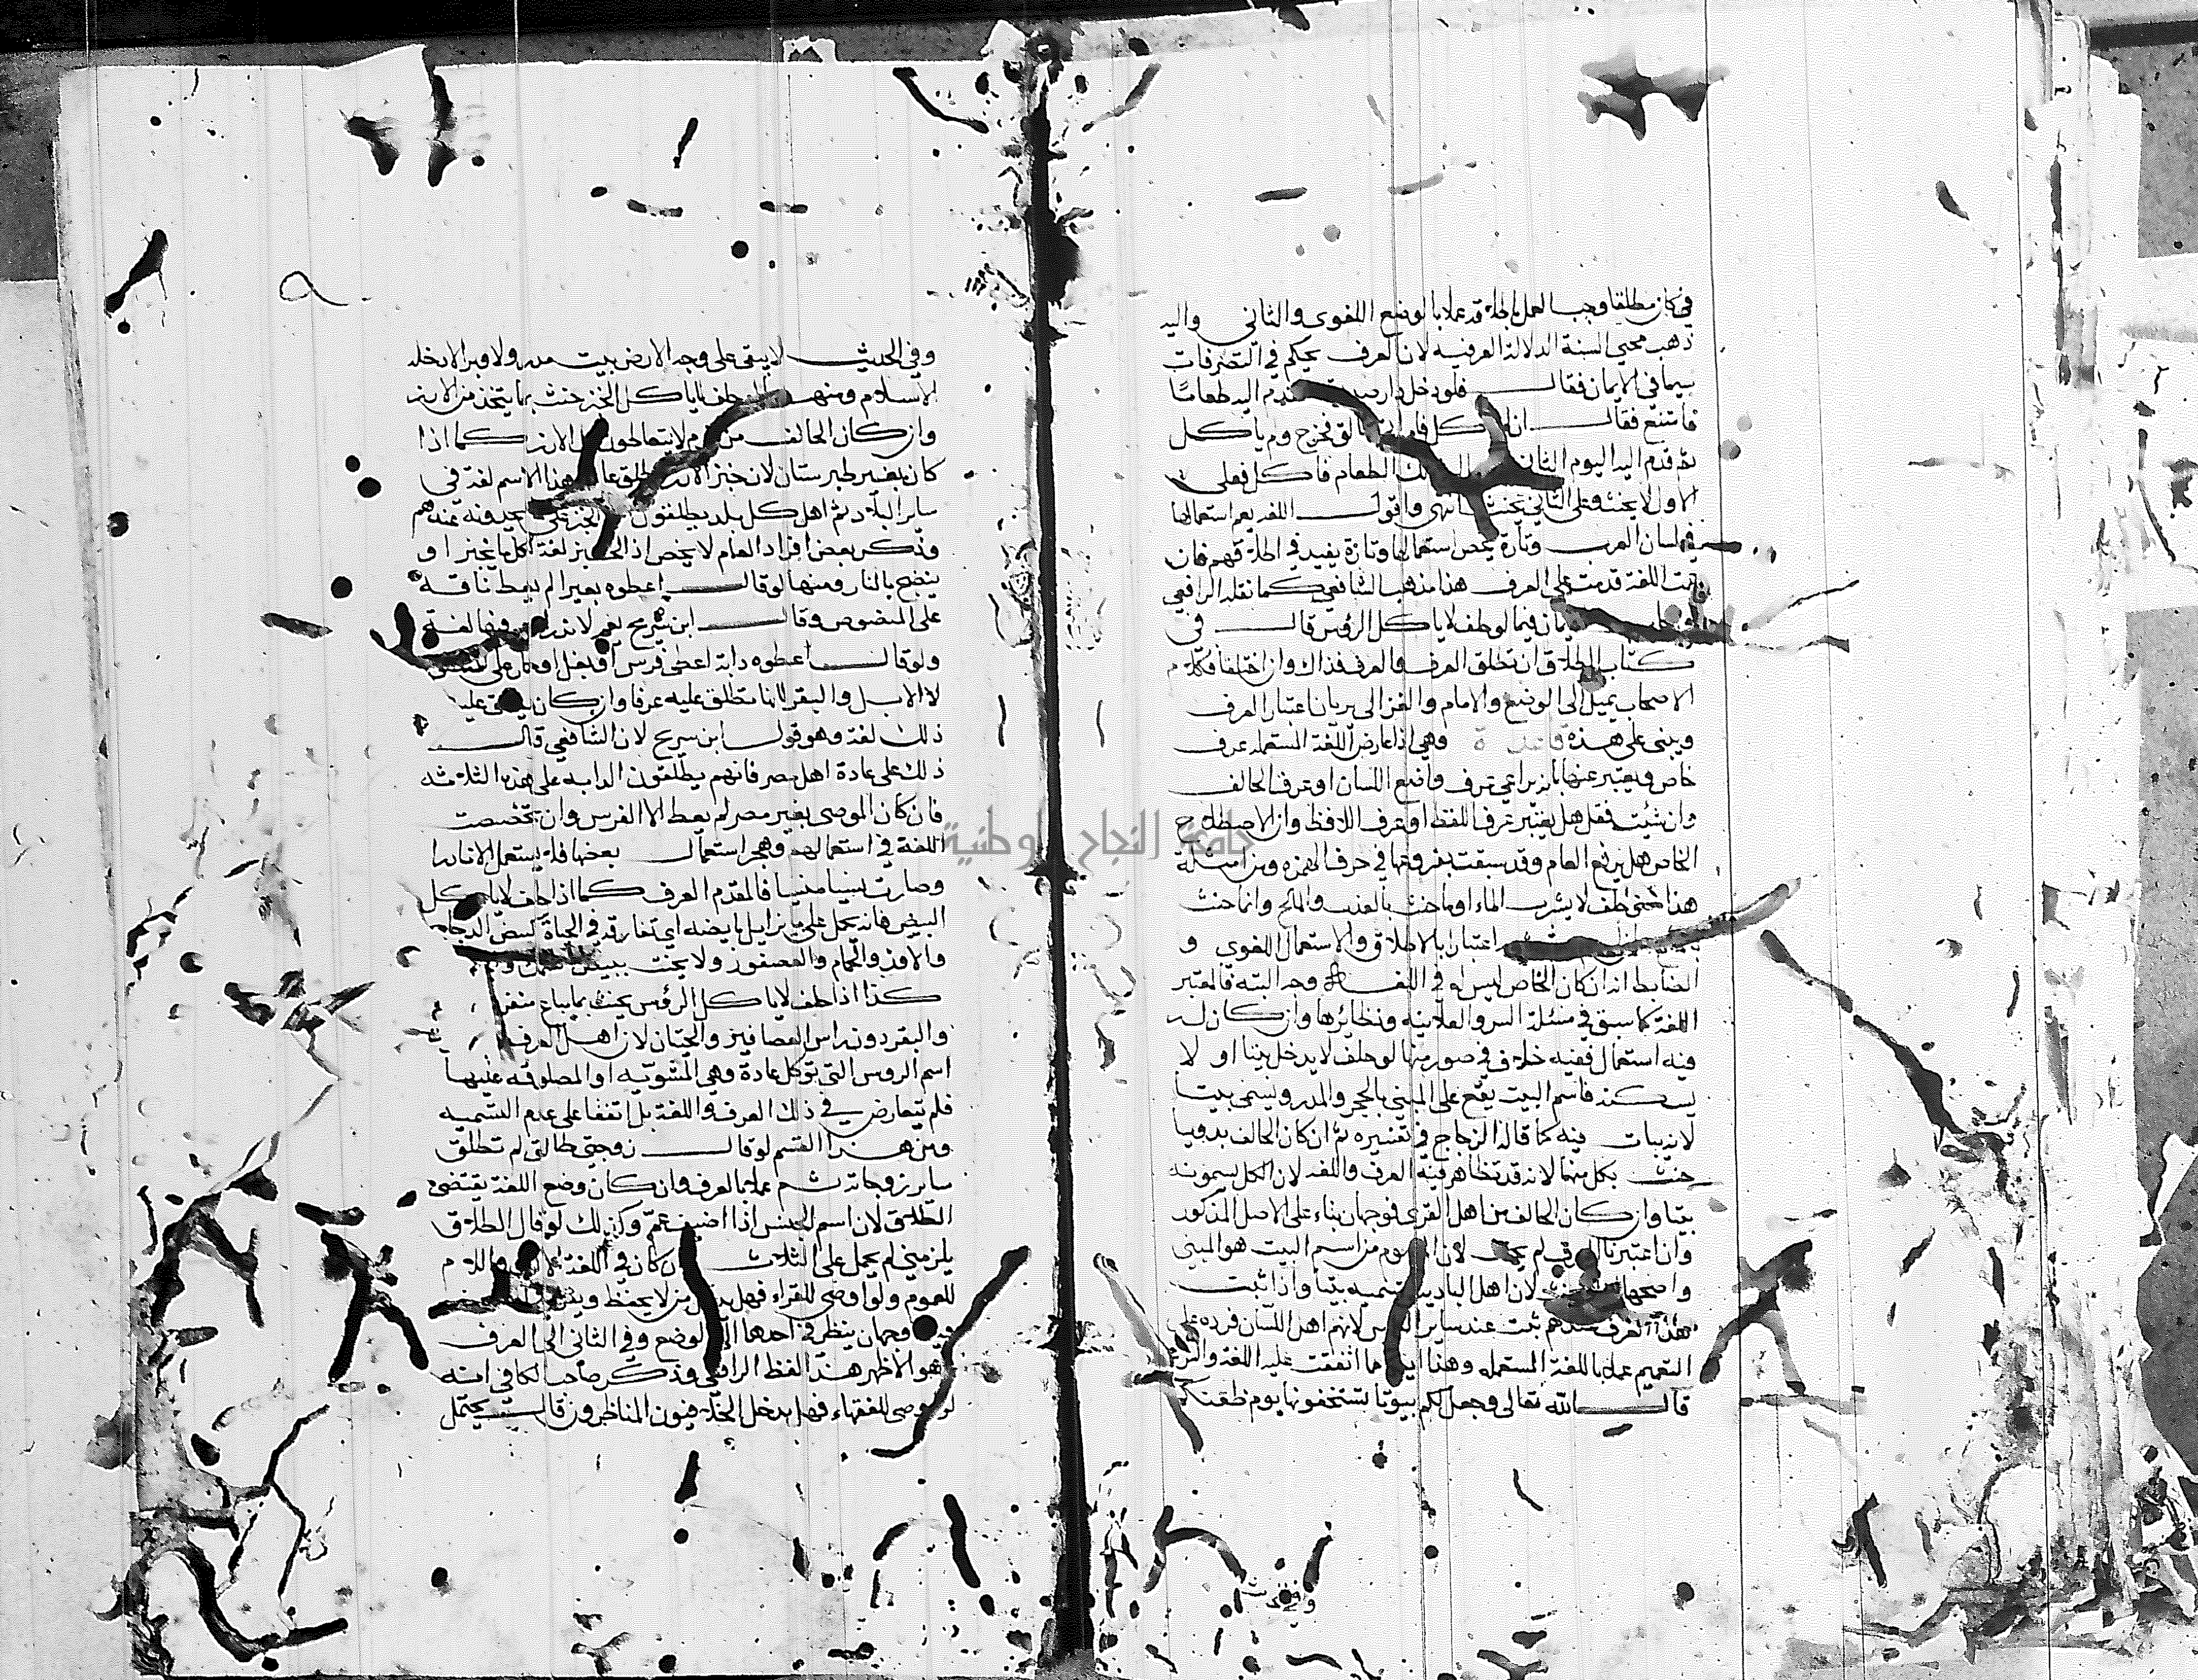 في كان مطلقا وجب العمل باطلاقه عملا بالوضع اللغوي والثاني واليه
ذهب محيي السنة الدلالة العرفية لان العرف يحكم في التصرفات
سيما في الايمان فقال فلو دخل دار صديقه فقدم اليه طعاما
فامتنع فقال ان لم تاكل فامراتي طالق فخرج ولم ياكل
ثم قدم اليه اليوم الثاني ذلك الطعام فاكل فعلى
الاول لا يحنث وعلى الثاني يحنث انتهى واقول اللغة يعم استعمالها
في لسان العرب وتارة يخص استعمالها وتارة يفيد في اطلاقهم فان
عمت اللغة قدمت على العرف هذا مذهب الشافعي كما نقله الرافعي
فيما لو حلف لا ياكل الرؤس قال في
كتاب الطلاق ان تطلق العرف والعرف فذاك وان اختلفا فكلام
الاصحاب يميل الى الوضع والامام والغزالي يريان اعتبار العرف
ويبنى على هذه قاعدة وهي اذا عارض اللغة المستعمله عرف
خاص ويعتبر عنها بانه يراعي عرف واضع اللسان او عرف الحالف
وان شئت فقل هل يعتبر عرف اللفظ او عرف اللافظ وان الاصطلاح
الخاص هل يرفع العام وقد سبقت بفروعها في حرف الهمزة ومن امثلة
هذا المعنى حلف لا يشرب الماء او ماء حنث بالعذب والمالح وانما حنث
اعتبارا بالاطلاق والاستعمال اللغوي و
الضابط انه ان كان الخاص ليس له في اللغة وجه البته فالمعتبر
اللغة كما سبق في مسئلة السر والعلانيه ونظائرها وان كان له
فيه استعمال ففيه خلاف في صور منها لو حلف لا يدخل بيتا او لا
يسكنه فاسم البيت يقع على المبني بالحجر والمدر ويسمى بيتا
لانه يبات فيه كما قاله الزجاج في تفسيره ثم ان كان الحالف بدويا
حنث بكل منهما لانه قد تظاهر فيه العرف واللغه لان الكل يسمونه
بيتا وان كان الحالف من اهل القرى فوجهان بناء على الاصل المذكور
وان اعتبرنا العرف لم يحنث لان المفهوم من اسم البيت هو المبني
واصحهما الحنث لان اهل البادية تسميه بيتا واذا ثبت
هذا العرف عندهم ثبت عند ساير الناس لانهم اهل اللسان فرده على
التعميم عملا باللغة المستعمله وهذا ايضا مما اتفقت عليه اللغة والشرع
قال الله تعالى وجعل لكم بيوتا تستخفونها يوم ظعنكم
وفي الحديث
وفي الحديث لا يبقى على وجه الارض بيت مدر ولا وبر الا دخله
الاسلام ومنها لو حلف لا ياكل الخبز حنث بما يتخذ من الارز
وان كان الحالف من قوم لا يتعاطون اكل الارز كما اذا
كان بغير طبرستان لان خبز الارز يطلق عليه هذا الاسم لغة في
ساير البلاد ثم اهل كل بلد يطلقون الخبز على ما يجدونه عندهم
وذكر بعض افراد العام لا يخص اذ الخبز لغة اكل ما يخبز او
ينضج بالنار ومنها لو قال اعطوه بعيرا لم يعط ناقة
على المنصوص وقال ابن سريج نعم لاندراجه فيه لغة
ولو قال اعطوه دابة اعطى فرس او بغل او حمار على المنصوص
لا الابل والبقر لانها تطلق عليه عرفا وان كان يطلق عليه
ذلك لغة وهو قول ابن سريج لان الشافعي قال
ذلك على عادة اهل مصر فانهم يطلقون الدابه على هذه الثلاثه
فان كان الموصي بغير مصر لم يعط الا الفرس وان تخصصت
اللغة في استعمالهم وهجر استعمال بعضها فلا يستعمل الا نادرا
وصارت نسيا منسيا فالمقدم العرف كما اذا حلف لا ياكل
البيض فانه يحمل على ما يزايل بايضه اي تفارقه في الحياة كبيض الدجاج
والاوز والحمام والعصفور ولا يحنث ببيض السمك
كذا اذا حلف لا ياكل الرؤس يحنث بما يباع منفردا
والبقر دون راس العصافير والحيتان لان اهل العرف
اسم الروس التي تؤكل عادة وهي المشويه او المصلوقه عليها
فلم يتعارض في ذلك العرف واللغة بل اتفقا على عدم التسميه
ومن هذا القسم لو قال زوجتي طالق لم تطلق
ساير زوجاته ثم عملا بالعرف وان كان وضع اللغة يقتضي
الطلاق لان اسم الجنس اذا اضيف عم وكذلك لو قال الطلاق
يلزمني لم يحمل على الثلاث وان كان في اللغة الالف واللام
للعموم ولو اوصى للقراء فهل يدخل من لا يحفظ ويقرا في المصحف
فيه وجهان ينظر في احدهما الى الوضع وفي الثاني الى العرف
وهو الاظهر هذا لفظ الرافعي وذكر صاحب الكافي انه
لو اوصى للفقهاء فهل يدخل الخلافيون المناظرون قال يحتمل
جامعة النجاح الوطنية